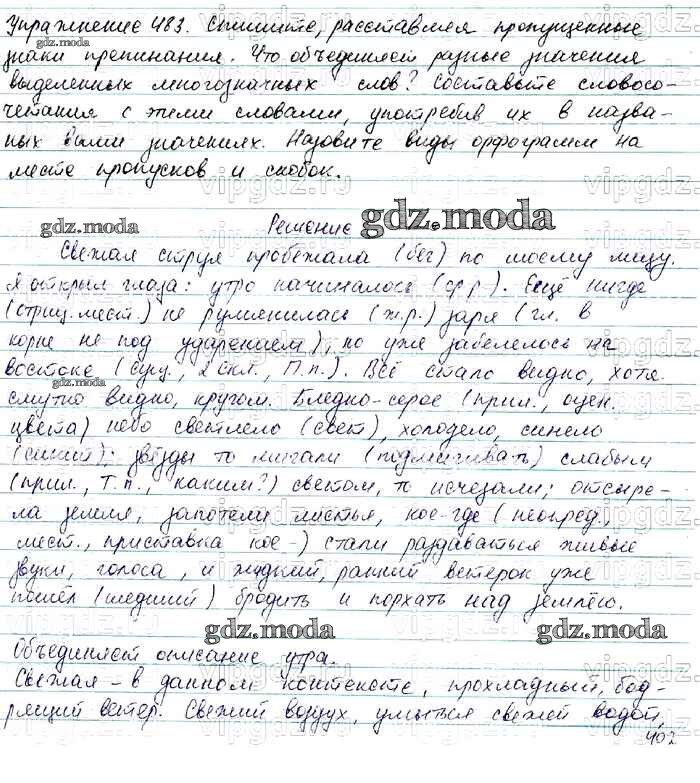 Упражнение 483. Спишите, расставляя пропущенные
знаки препинания. Что объединяет разные значения
выделенных многозначных слов? Составьте словосо-
четания с этими словами, употребив их в назва-
ных вами значениях. Назовите виды орфограмм на
месте пропусков и скобок.
gdz.moda
Решение
Свежая струя пробежала (бег) по моему лицу.
Я открыл глаза: утро начиналось (ср р.). Ещё нигде
(отриц. мест.) не румянилась (ж.р.) заря (гл. в
корне не под ударением), но уже забелелось на
востоке (сущ., 2 скл., П.п.). Всё стало видно, хотя
смутно видно, кругом. Бледно-серое (прил., оцен.
цвета) небо светлело (свет), холодело, синело
(синий); звёзды то мигали (подмигивать) слабым
(прил., Т.п., каким?) светом, то исчезали; отсыре-
ла земля, запотели листья, кое-где (неопред.,
мест., приставка кое-) стали раздаваться живые
звуки, голоса, и жидкий, ранний ветерок уже
пошёл (шедший) бродить и порхать над землёю.
gdz.moda
Объединяет описание утра.
Свежая - в данном контексте, прохладный, бод-
рящий ветер. Свежий воздух, умыться свежей водой,
402